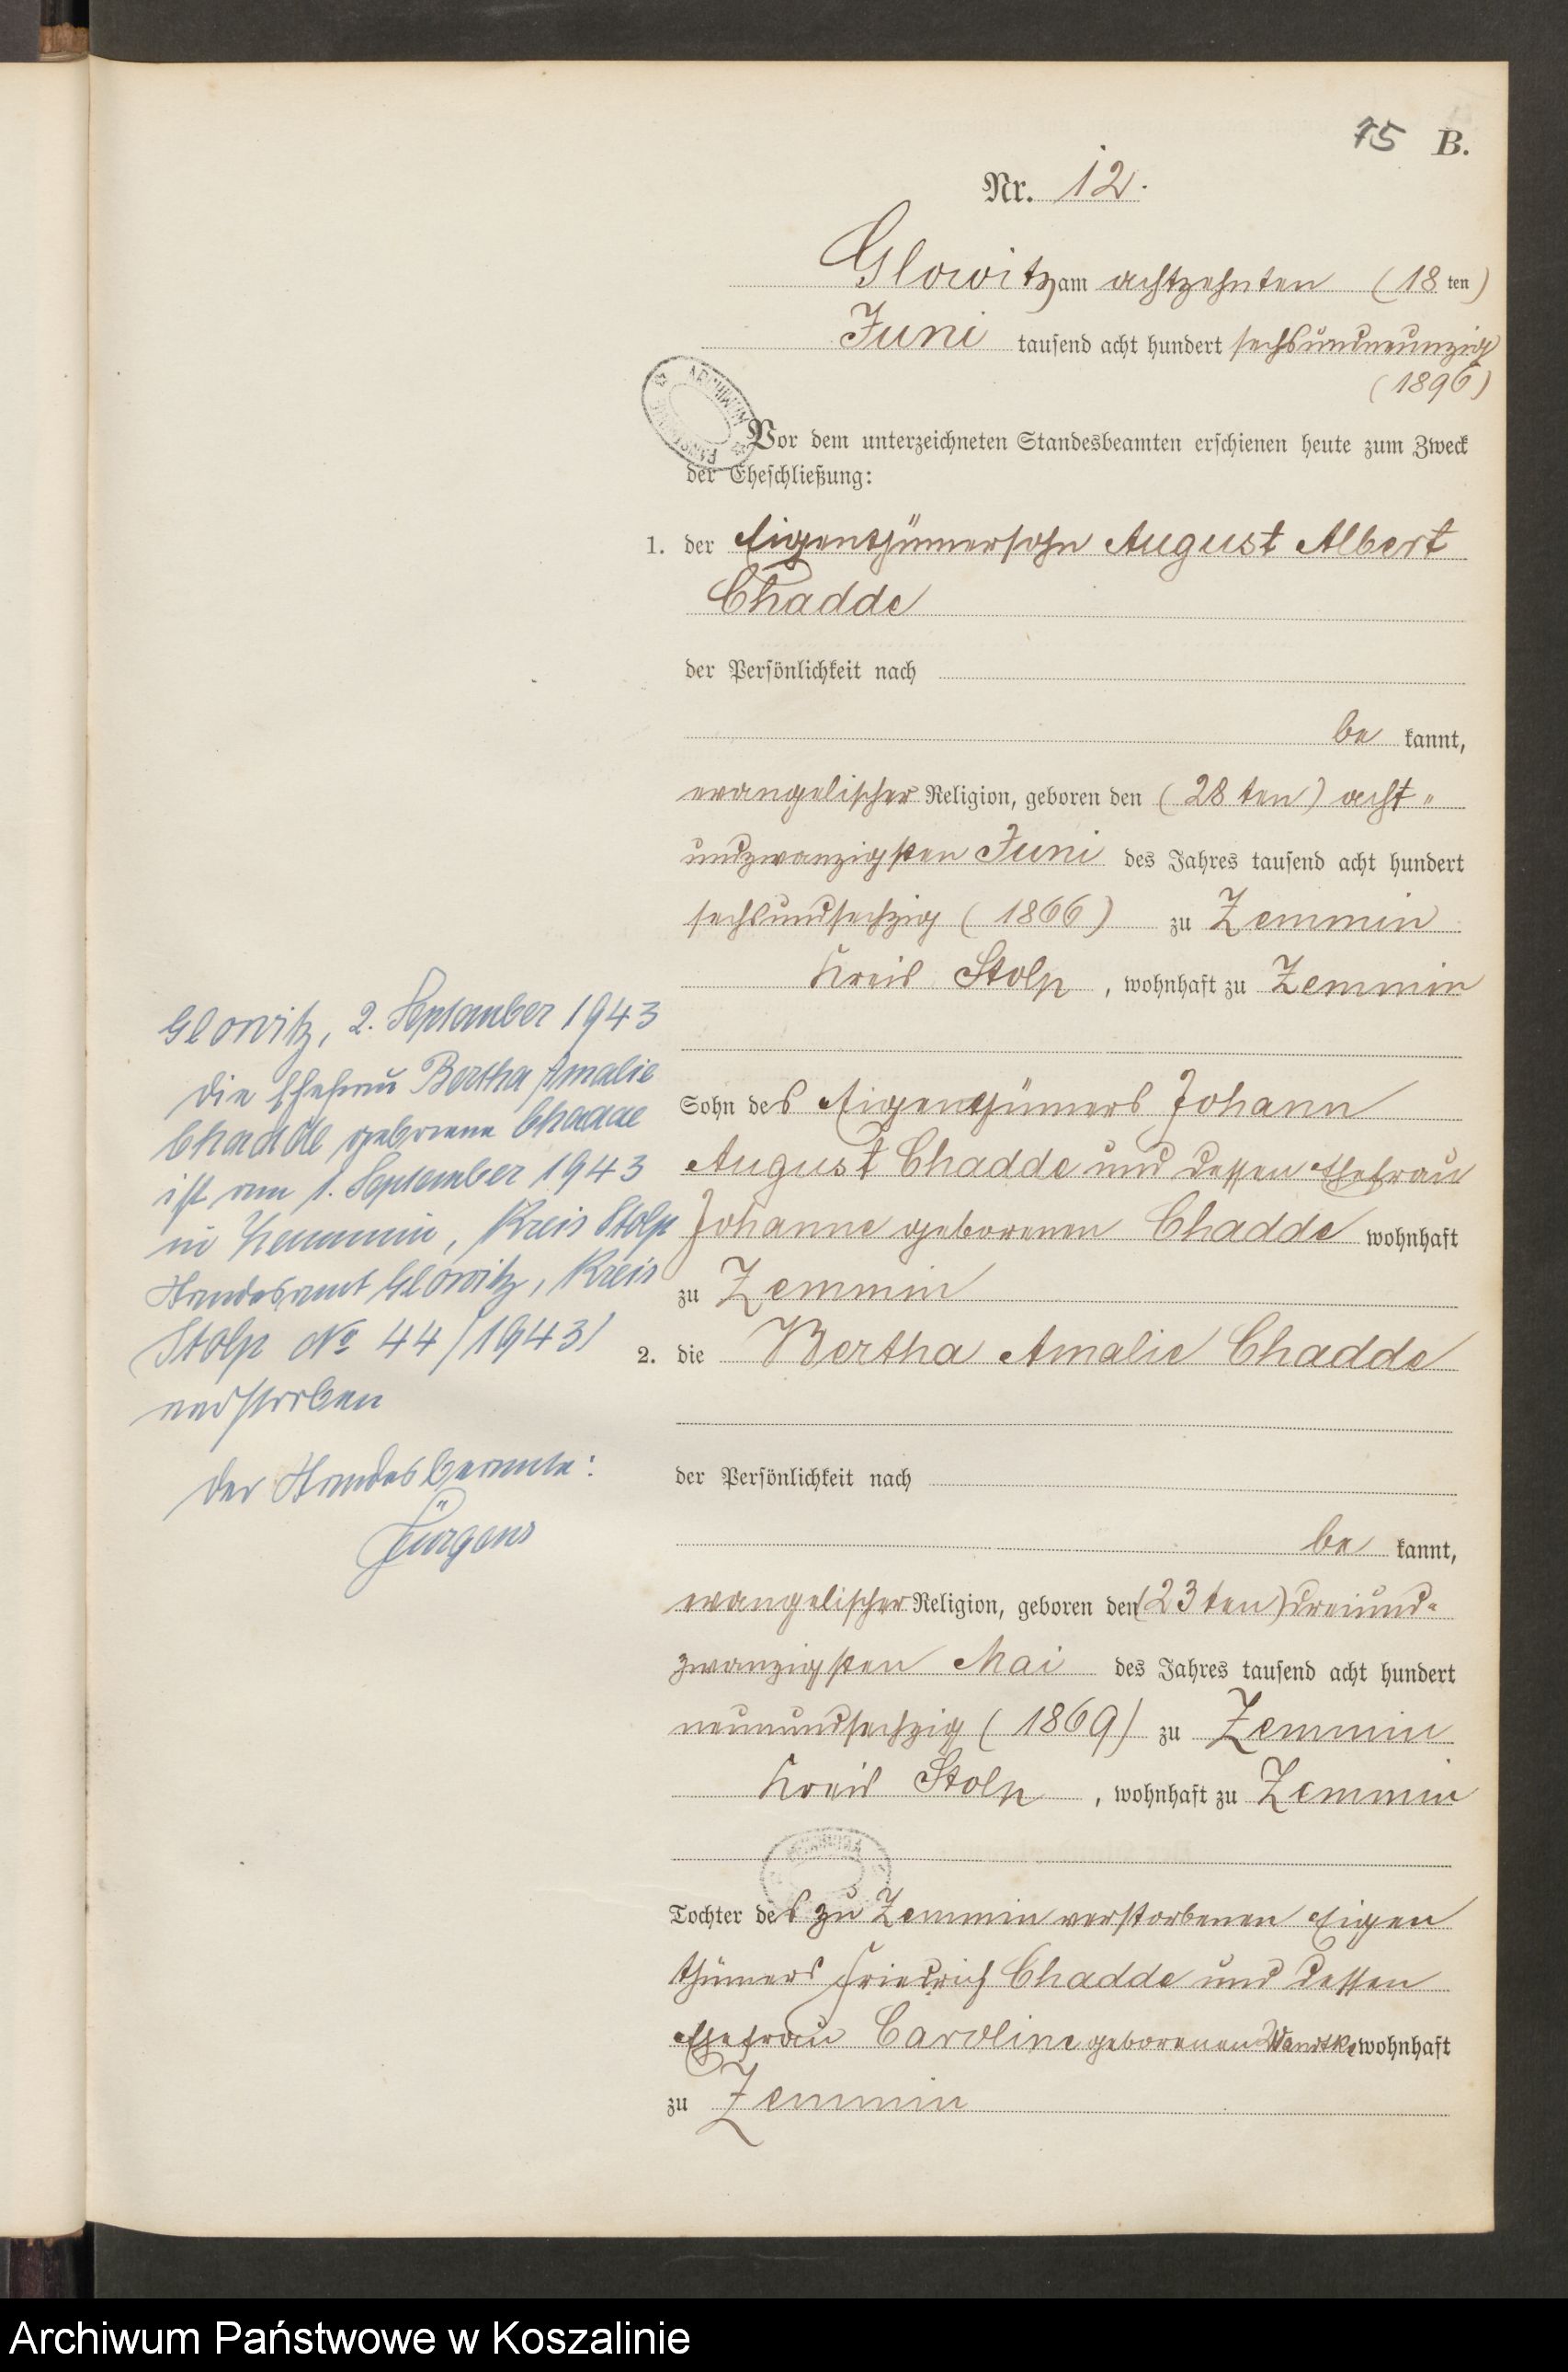 75 B.
Nr. 12.
Glowitz am achtzehnten (18 ten)
Juni tausend acht hundert sechsundneunzig
(1896)
Vor dem unterzeichneten Standesbeamten erschienen heute zum Zweck
der Eheschließung:
1. der Eigenthümersohn August Albert
Chadde
der Persönlichkeit nach
be kannt,
evangelischer Religion, geboren den (28 ten) acht"
undzwanzigsten Juni des Jahres tausend acht hundert
sechsundsechzig (1866) zu Zemmin
Kreis Stolp, wohnhaft zu Zemmin
Sohn des Eigenthümers Johann
August Chadde und dessen Ehefrau
Johanne geborenen Chadde wohnhaft
zu Zemmin
2. die Bertha Amalie Chadde
der Persönlichkeit nach
be kannt,
evangelischer Religion, geboren den (23 ten) dreiund-
zwanzigsten Mai des Jahres tausend acht hundert
neunundsechzig (1869) zu Zemmin
Kreis Stolp, wohnhaft zu Zemmin
Tochter des zu Zemmin verstorbenen Eigen
thümers Friedrich Chadde und dessen
Ehefrau Caroline geborenen Wandtke wohnhaft
zu Zemmin
Glowitz, 2. September 1943
Die Ehefrau Bertha Amalie
Chadde geborene Chadde
ist am 1. September 1943
in Zemmin, Kreis Stolp
Standesamt Glowitz, Kreis
Stolp No 44/1943)
verstorben
Der Standesbeamte:
Jürgens
ARCHIWUM
Archiwum Państwowe w Koszalinie